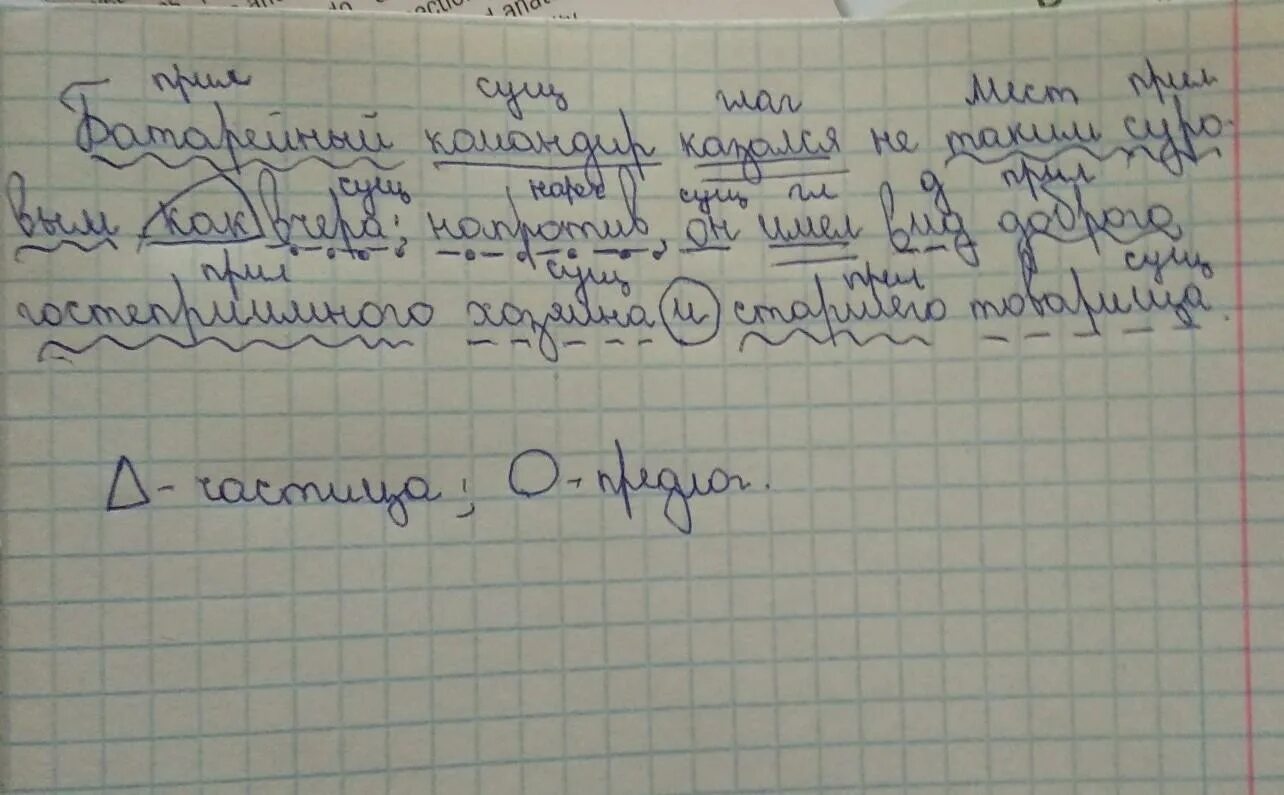 прил сущ глаг мест прил
Батарейный командир казался не таким суро-
сущ нареч сущ гл прил
вым как вчера; напротив, он имел вид доброго
прил сущ прил сущ
гостеприимного хозяина и старшего товарища.
Δ - частица; О - предлог.